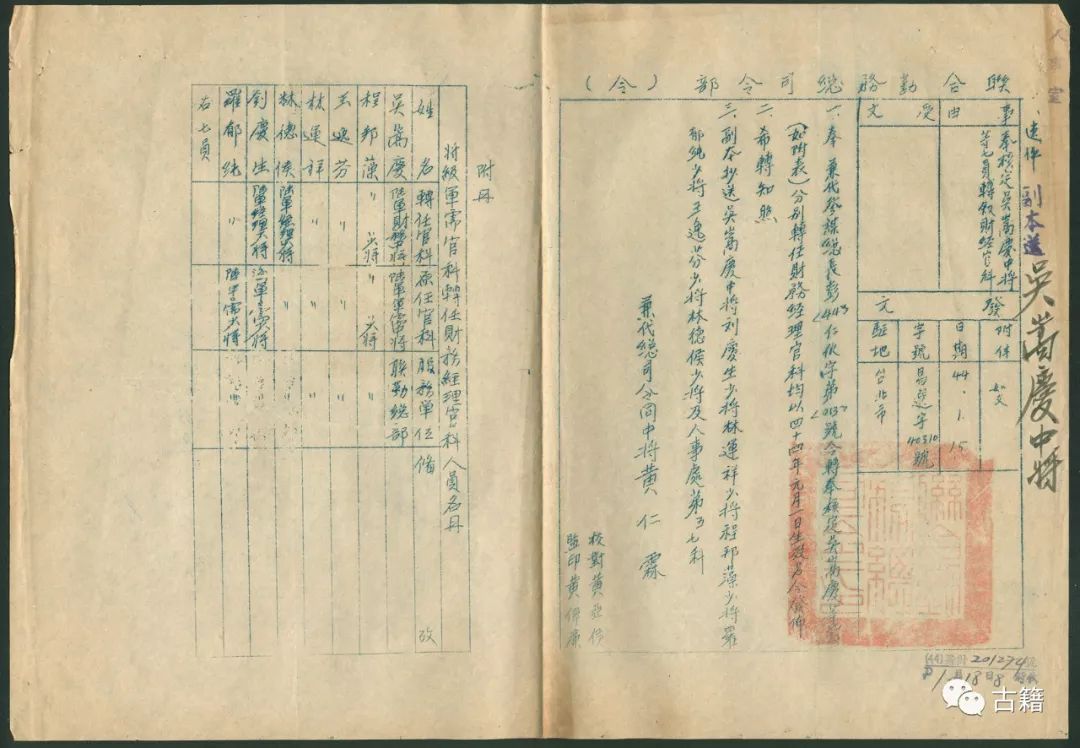 人事室
送件 副本送
吳嵩慶中將
聯合勤務總司令部（令）
事由
奉核定吳嵩慶中將
等七員轉敘財經官科
受文
發文
附件
如文
日期
44.1.15
字號
字40310號
駐地
台北市
一、奉 兼代參謀總長彭(44)仁 字第013號令轉奉核定吳嵩慶
(如附表)分別轉任財務經理官科均以四十四年元月一日生效
二、希轉知照
三、副本抄送吳嵩慶中將刘慶生少將林運祥少將程邦藻少將羅
郁純少將王逸芬少將林德侯少將及人事處第3 7科
兼代總司令同中將黃仁霖
校對黃
監印黃
201274
1月18日8
附冊
將級軍需官科轉任財務經理官科人員名冊
姓名 轉任官科 原任官科 服務單位 備攷
吳嵩慶 陸軍財務中將 陸軍軍需中將 聯勤總部
程邦藻 〃 少將 〃 少將 〃
王逸芬 〃 〃 〃
林運祥 〃 〃 〃
林德侯 陸軍經理少將 〃 〃
劉慶生 陸軍經理少將 軍需少將
羅郁純 〃 陸軍軍需少將
右七員
古籍